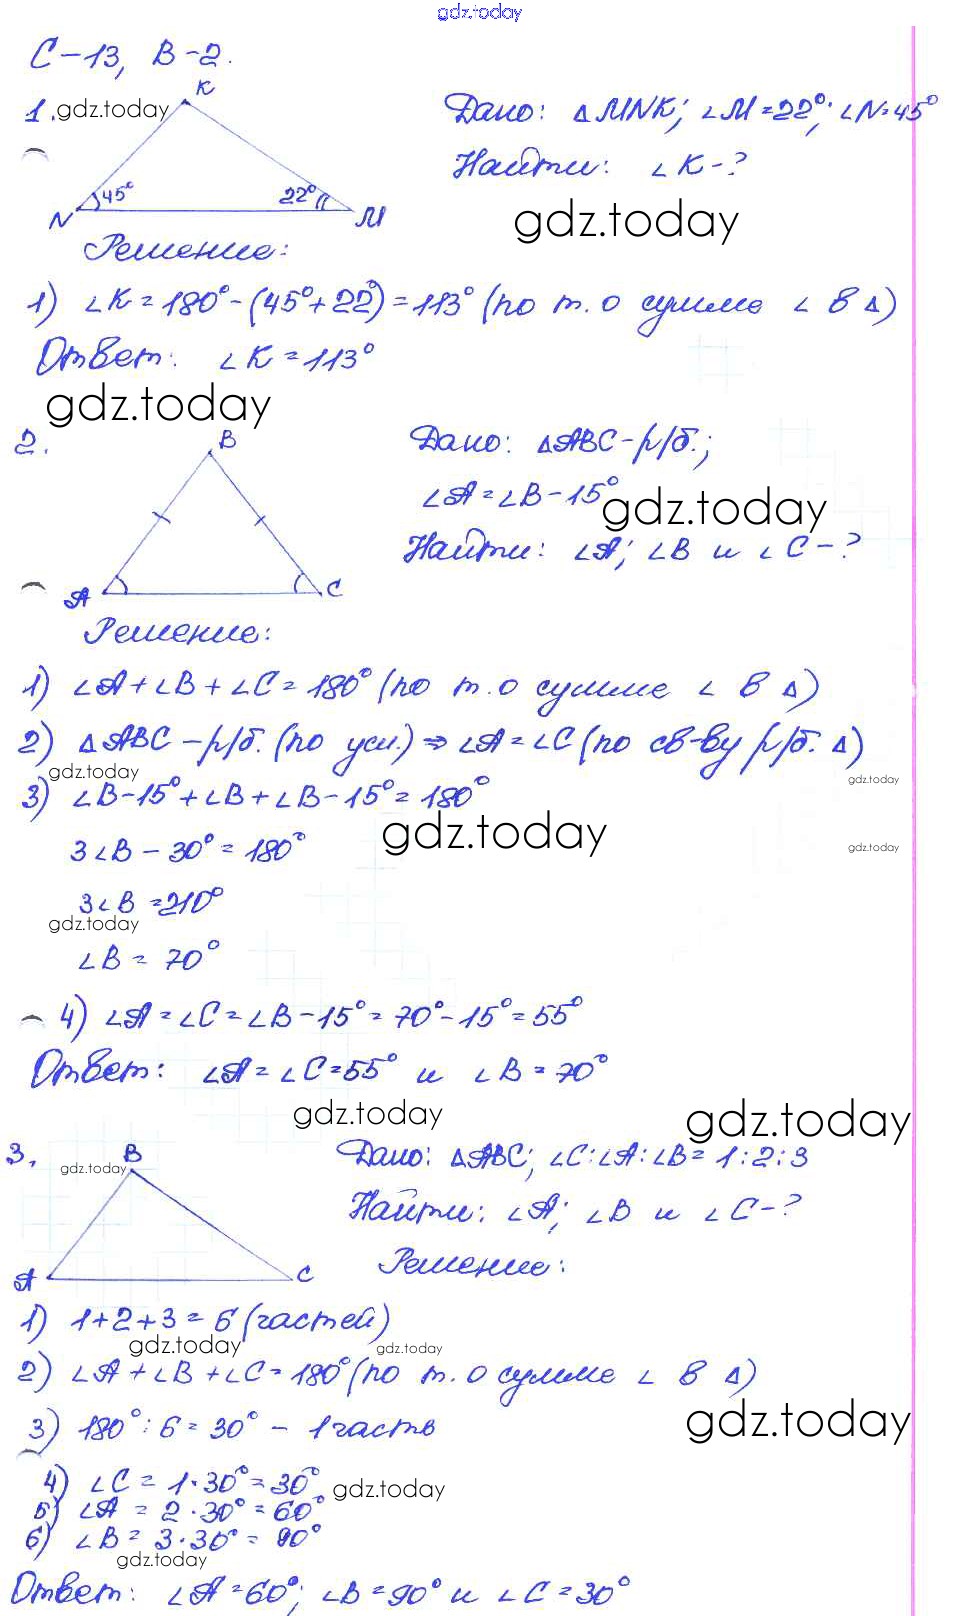 gdz.today
С-13, В-2.
1. gdz.today
K
45°
22°
N
M
Дано: △MNK; ∠M=22°; ∠N=45°
Найти: ∠K-?
gdz.today
Решение:
1) ∠K=180°-(45°+22°)=113° (по т. о сумме ∠ в △)
Ответ: ∠K=113°
gdz.today
2.
B
A
C
Дано: △ABC-р/б.;
∠A=∠B-15°
gdz.today
Найти: ∠A; ∠B и ∠C-?
Решение:
1) ∠A+∠B+∠C=180° (по т. о сумме ∠ в △)
2) △ABC-р/б. (по усл.) ⇒ ∠A=∠C (по св-ву р/б. △)
gdz.today
gdz.today
3) ∠B-15°+∠B+∠B-15°=180°
gdz.today
3∠B-30°=180°
gdz.today
3∠B=210°
gdz.today
∠B=70°
4) ∠A=∠C=∠B-15°=70°-15°=55°
Ответ: ∠A=∠C=55° и ∠B=70°
gdz.today
gdz.today
3.
B
gdz.today
A
C
Дано: △ABC; ∠C:∠A:∠B=1:2:3
Найти: ∠A; ∠B и ∠C-?
Решение:
1) 1+2+3=6 (частей)
gdz.today
gdz.today
2) ∠A+∠B+∠C=180° (по т. о сумме ∠ в △)
3) 180°:6=30° - 1 часть
gdz.today
4) ∠C=1·30°=30°
gdz.today
5) ∠A=2·30°=60°
6) ∠B=3·30°=90°
gdz.today
Ответ: ∠A=60°; ∠B=90° и ∠C=30°